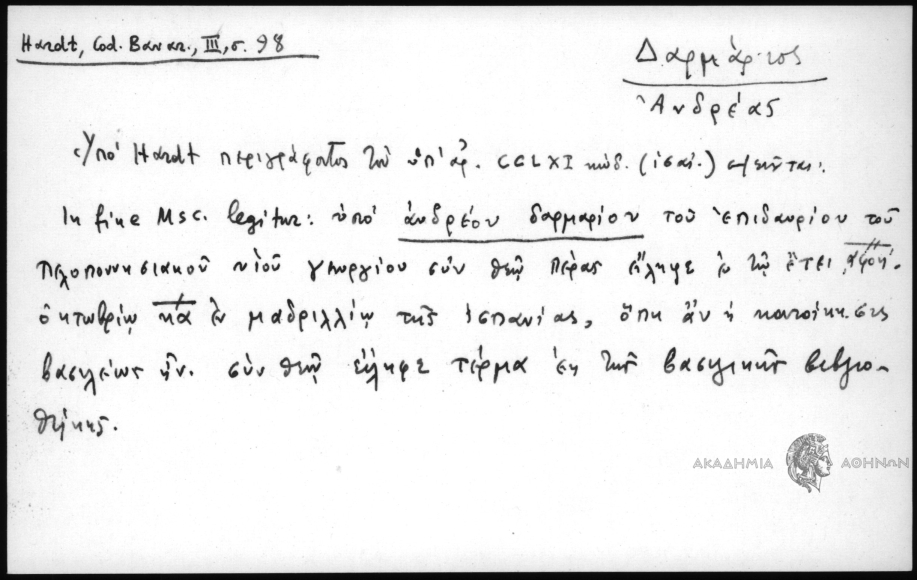 Hardt, Cod. Bavar., III, σ. 98
Δαρμάριος
Ἀνδρέας
Ὑπὸ Hardt περιγράφοντος τὸν ὑπ' ἀρ. CCLXI κώδ.
In fine Msc. legitur: ὑπὸ ἀνδρέου δαρμαρίου τοῦ ἐπιδαυρίου τοῦ
πελοποννησιακοῦ υἱοῦ γεωργίου σὺν θεῷ πέρας εἴληφε ἐν τῷ ἔτει ͵αφοη'.
ὀκτωβρίῳ κα ἐν μαδριλλίῳ τῆς ἱσπανίας, ὅπη ἂν ἡ κατοίκησις
βασιλέως ἦν. σὺν θεῷ εἴληφε τέρμα ἐκ τῆς βασιλικῆς βιβλιο-
θήκης.
ΑΚΑΔΗΜΙΑ ΑΘΗΝΩΝ